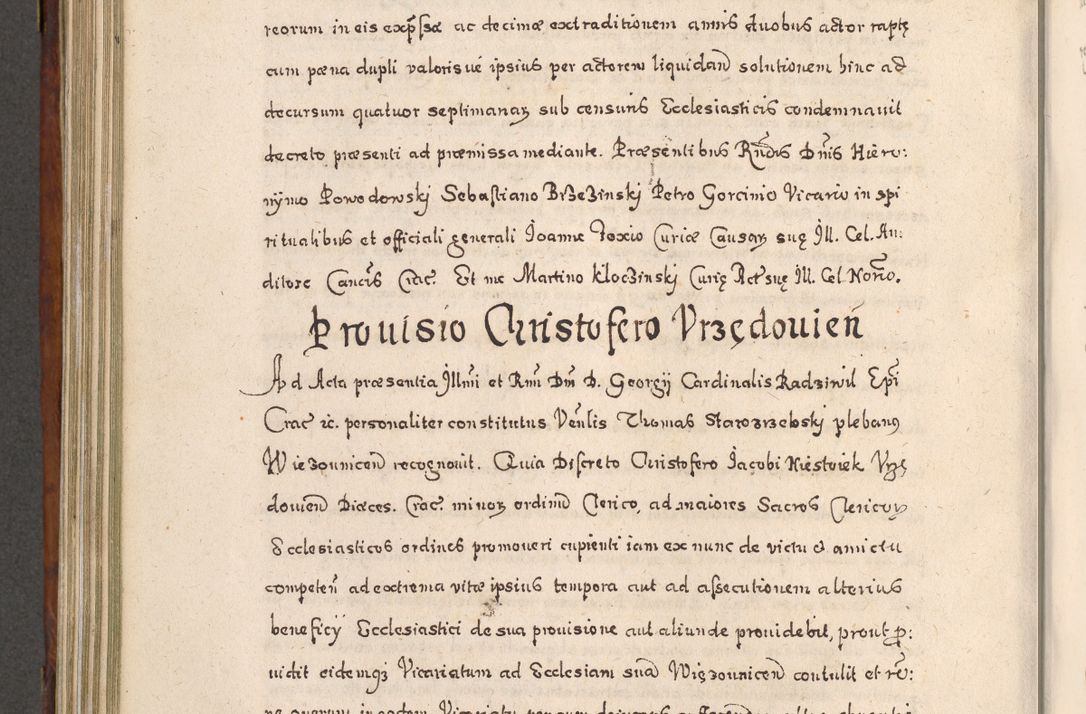 reorum in eis exp̃ssæ ac decimæ extraditionem annis duobus actor raptę
cum pæna dupli valoris ué ipsius per actorem liquidand̃ solutionem hinc ad
decursum quatuor septimanaꝝ sub censuris Ecclesiasticis condemnauit
decreto præsenti ad præmissa mediante. Præsentibus Rñdis Dñis Hiero:
nýmo Powodowskj Sebastiano Brzezinskj Petro Gorcinio Vicario in spi
ritualibus et officiali generali Joanne Foxio Curiæ Causaꝝ suę Ill. Cel. Au:
ditore Cancis Crac. Et me Martino Kloczinskj Curię Act suę Ill. Cel. Norio.
Prouisio Christofero Vrzędouień
Ad Acta præsentia Illmi et Rmi Dñi D. Georgij Cardinalis Radziwil Epi
Crac ic. personaliter constitutus Venlis Thomas Starozrzebskj plebanꝰ
Wiezounicen̄ recognouit. Quia Discreto Christofero Jacobi Niestoiek Vrzę
douien̄ Diæces. Crac. minoꝝ ordinũ Clerico, ad maiores Sacros Clericoꝝ
Ecclesiasticos ordines promoueri cupienti iam ex nunc de victu & amictu
competeñ ad extrema vitæ ipsius tempora aut ad assecutionem alterius
beneficÿ Ecclesiastici de sua prouisione aut aliunde prouidebit, prout ꝓ:
uidit eidemqʒ Vicariatum ad Ecclesiam suã Więzounicen̄ contulit et re: